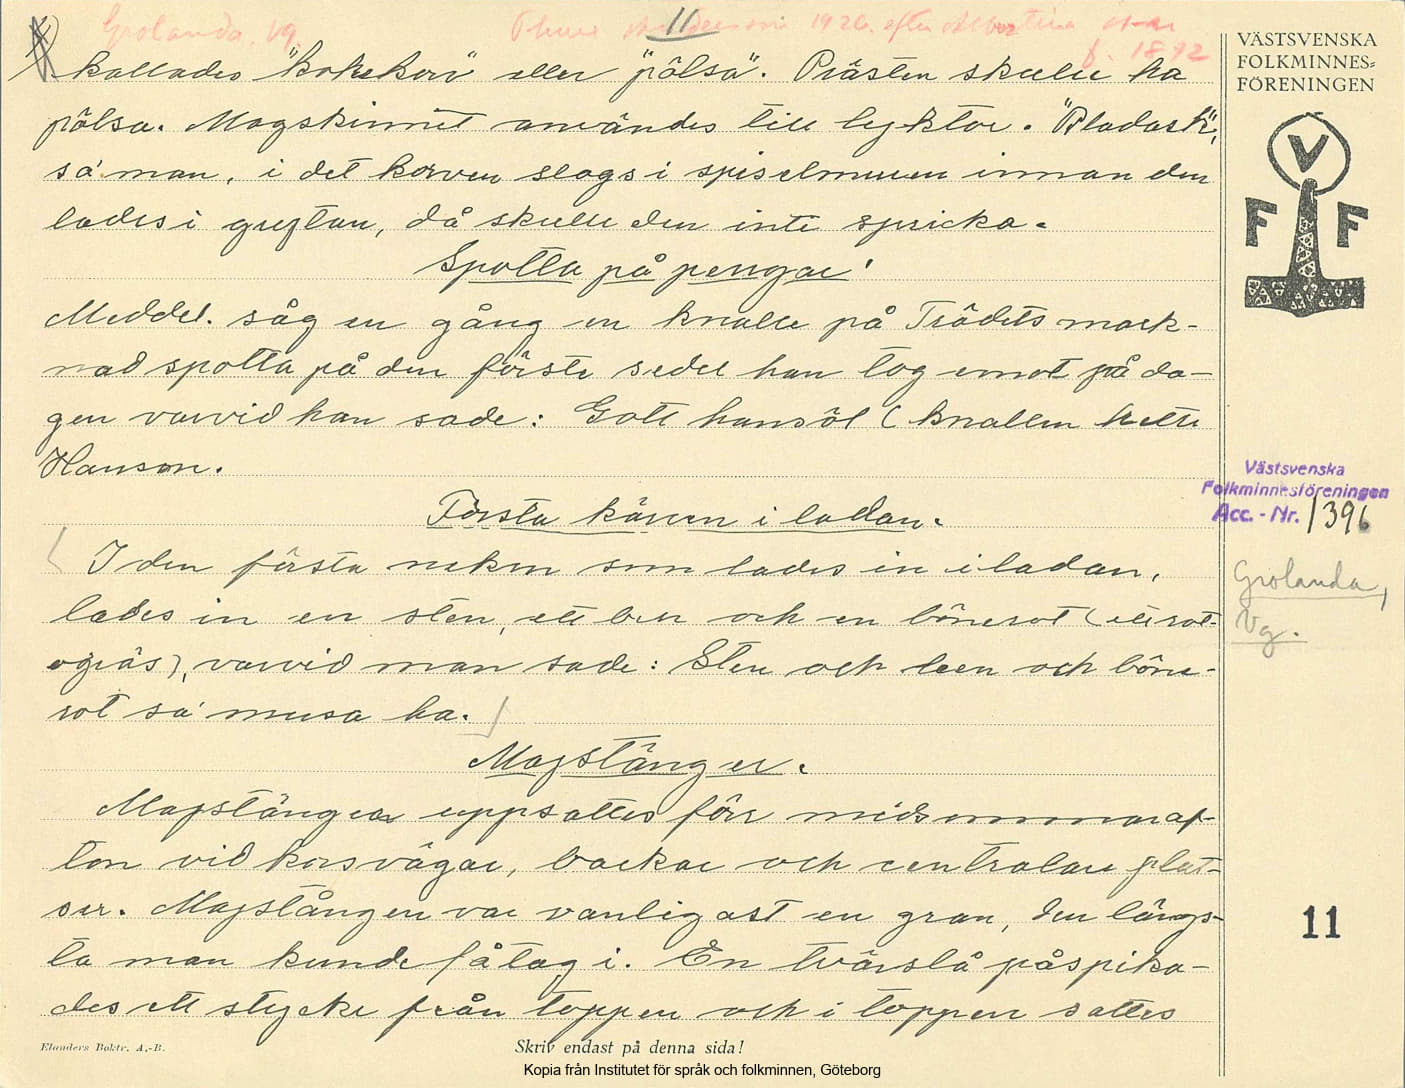 11
Grolanda. Vg.
1926. efter Albertina
f. 1892
kallades "kokekorv" eller "pölsa". Prästen skulle ha
pölsa. Magskinnet användes till lyktor. "Bladask",
sa' man, i det korven slogs i spiselmuren innan den
lades i grytan, då skulle den inte spricka.
Spotta på pengar!
Meddel. såg en gång en knalle på Trädets mark-
nad spotta på den förste sedel han tog emot på da-
gen varvid han sade: Gott hansöl (knallen hette
Hanson.
Första kärven i ladan.
I den första neken som lades in i ladan,
lades in en sten, ett ben och en bönerot (ett rot-
ogräs), varvid man sade: Sten och been och böne-
rot sa' musa ha.
Majstänger.
Majstänger uppsattes förr midsommaraf-
ton vid korsvägar, backar och centralare plat-
ser. Majstången var vanligast en gran, den längs-
ta man kunde få tag i. En tvärslå påspika-
des ett stycke från toppen och i toppen sattes
Elanders Boktr. A.-B.
Skriv endast på denna sida!
Kopia från Institutet för språk och folkminnen, Göteborg
VÄSTSVENSKA
FOLKMINNES=
FÖRENINGEN
V
F F
Västsvenska
Folkminnesföreningen
Acc. - Nr. 1396
Grolanda,
Vg.
11